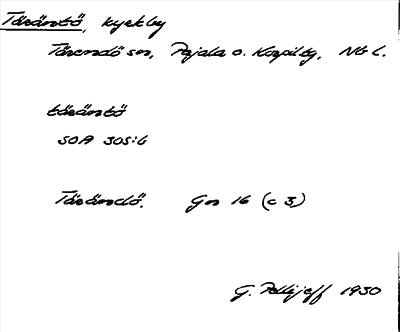 Täräntö, kyrkby
Tärendö sn, Pajala o. Korpil. tg, Nb l.
täräntö
SOA 305:6
Tärändö. Gn 16 (c 3)
G. Pellijeff 1930